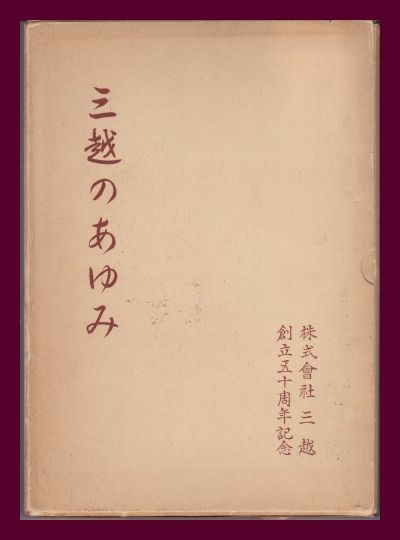 三越のあゆみ
株式會社 三越
創立五十周年記念